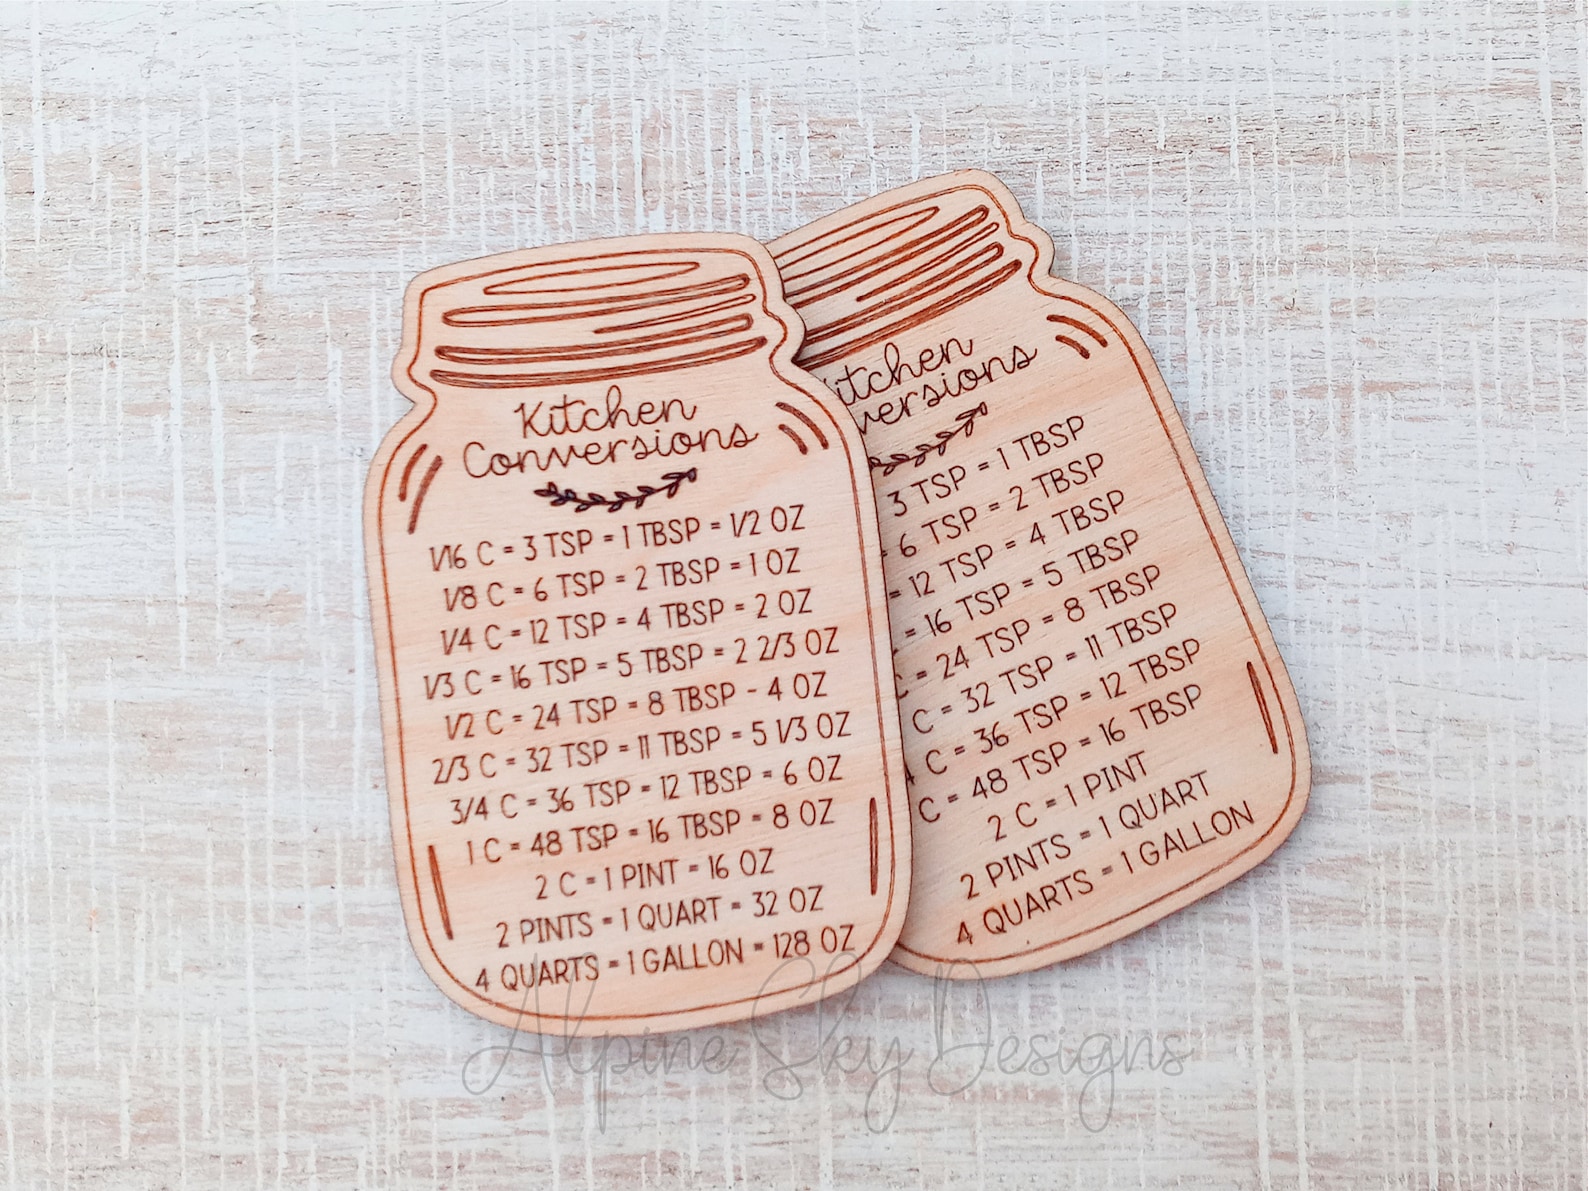 Kitchen
Conversions
1/16 C = 3 TSP = 1 TBSP = 1/2 OZ
1/8 C = 6 TSP = 2 TBSP = 1 OZ
1/4 C = 12 TSP = 4 TBSP = 2 OZ
1/3 C = 16 TSP = 5 TBSP = 2 2/3 OZ
1/2 C = 24 TSP = 8 TBSP - 4 OZ
2/3 C = 32 TSP = 11 TBSP = 5 1/3 OZ
3/4 C = 36 TSP = 12 TBSP = 6 OZ
1 C = 48 TSP = 16 TBSP = 8 OZ
2 C = 1 PINT = 16 OZ
2 PINTS = 1 QUART = 32 OZ
4 QUARTS = 1 GALLON = 128 OZ
itchen
versions
3 TSP = 1 TBSP
= 6 TSP = 2 TBSP
= 12 TSP = 4 TBSP
= 16 TSP = 5 TBSP
C = 24 TSP = 8 TBSP
C = 32 TSP = 11 TBSP
C = 36 TSP = 12 TBSP
C = 48 TSP = 16 TBSP
2 C = 1 PINT
2 PINTS = 1 QUART
4 QUARTS = 1 GALLON
Alpine Sky Designs